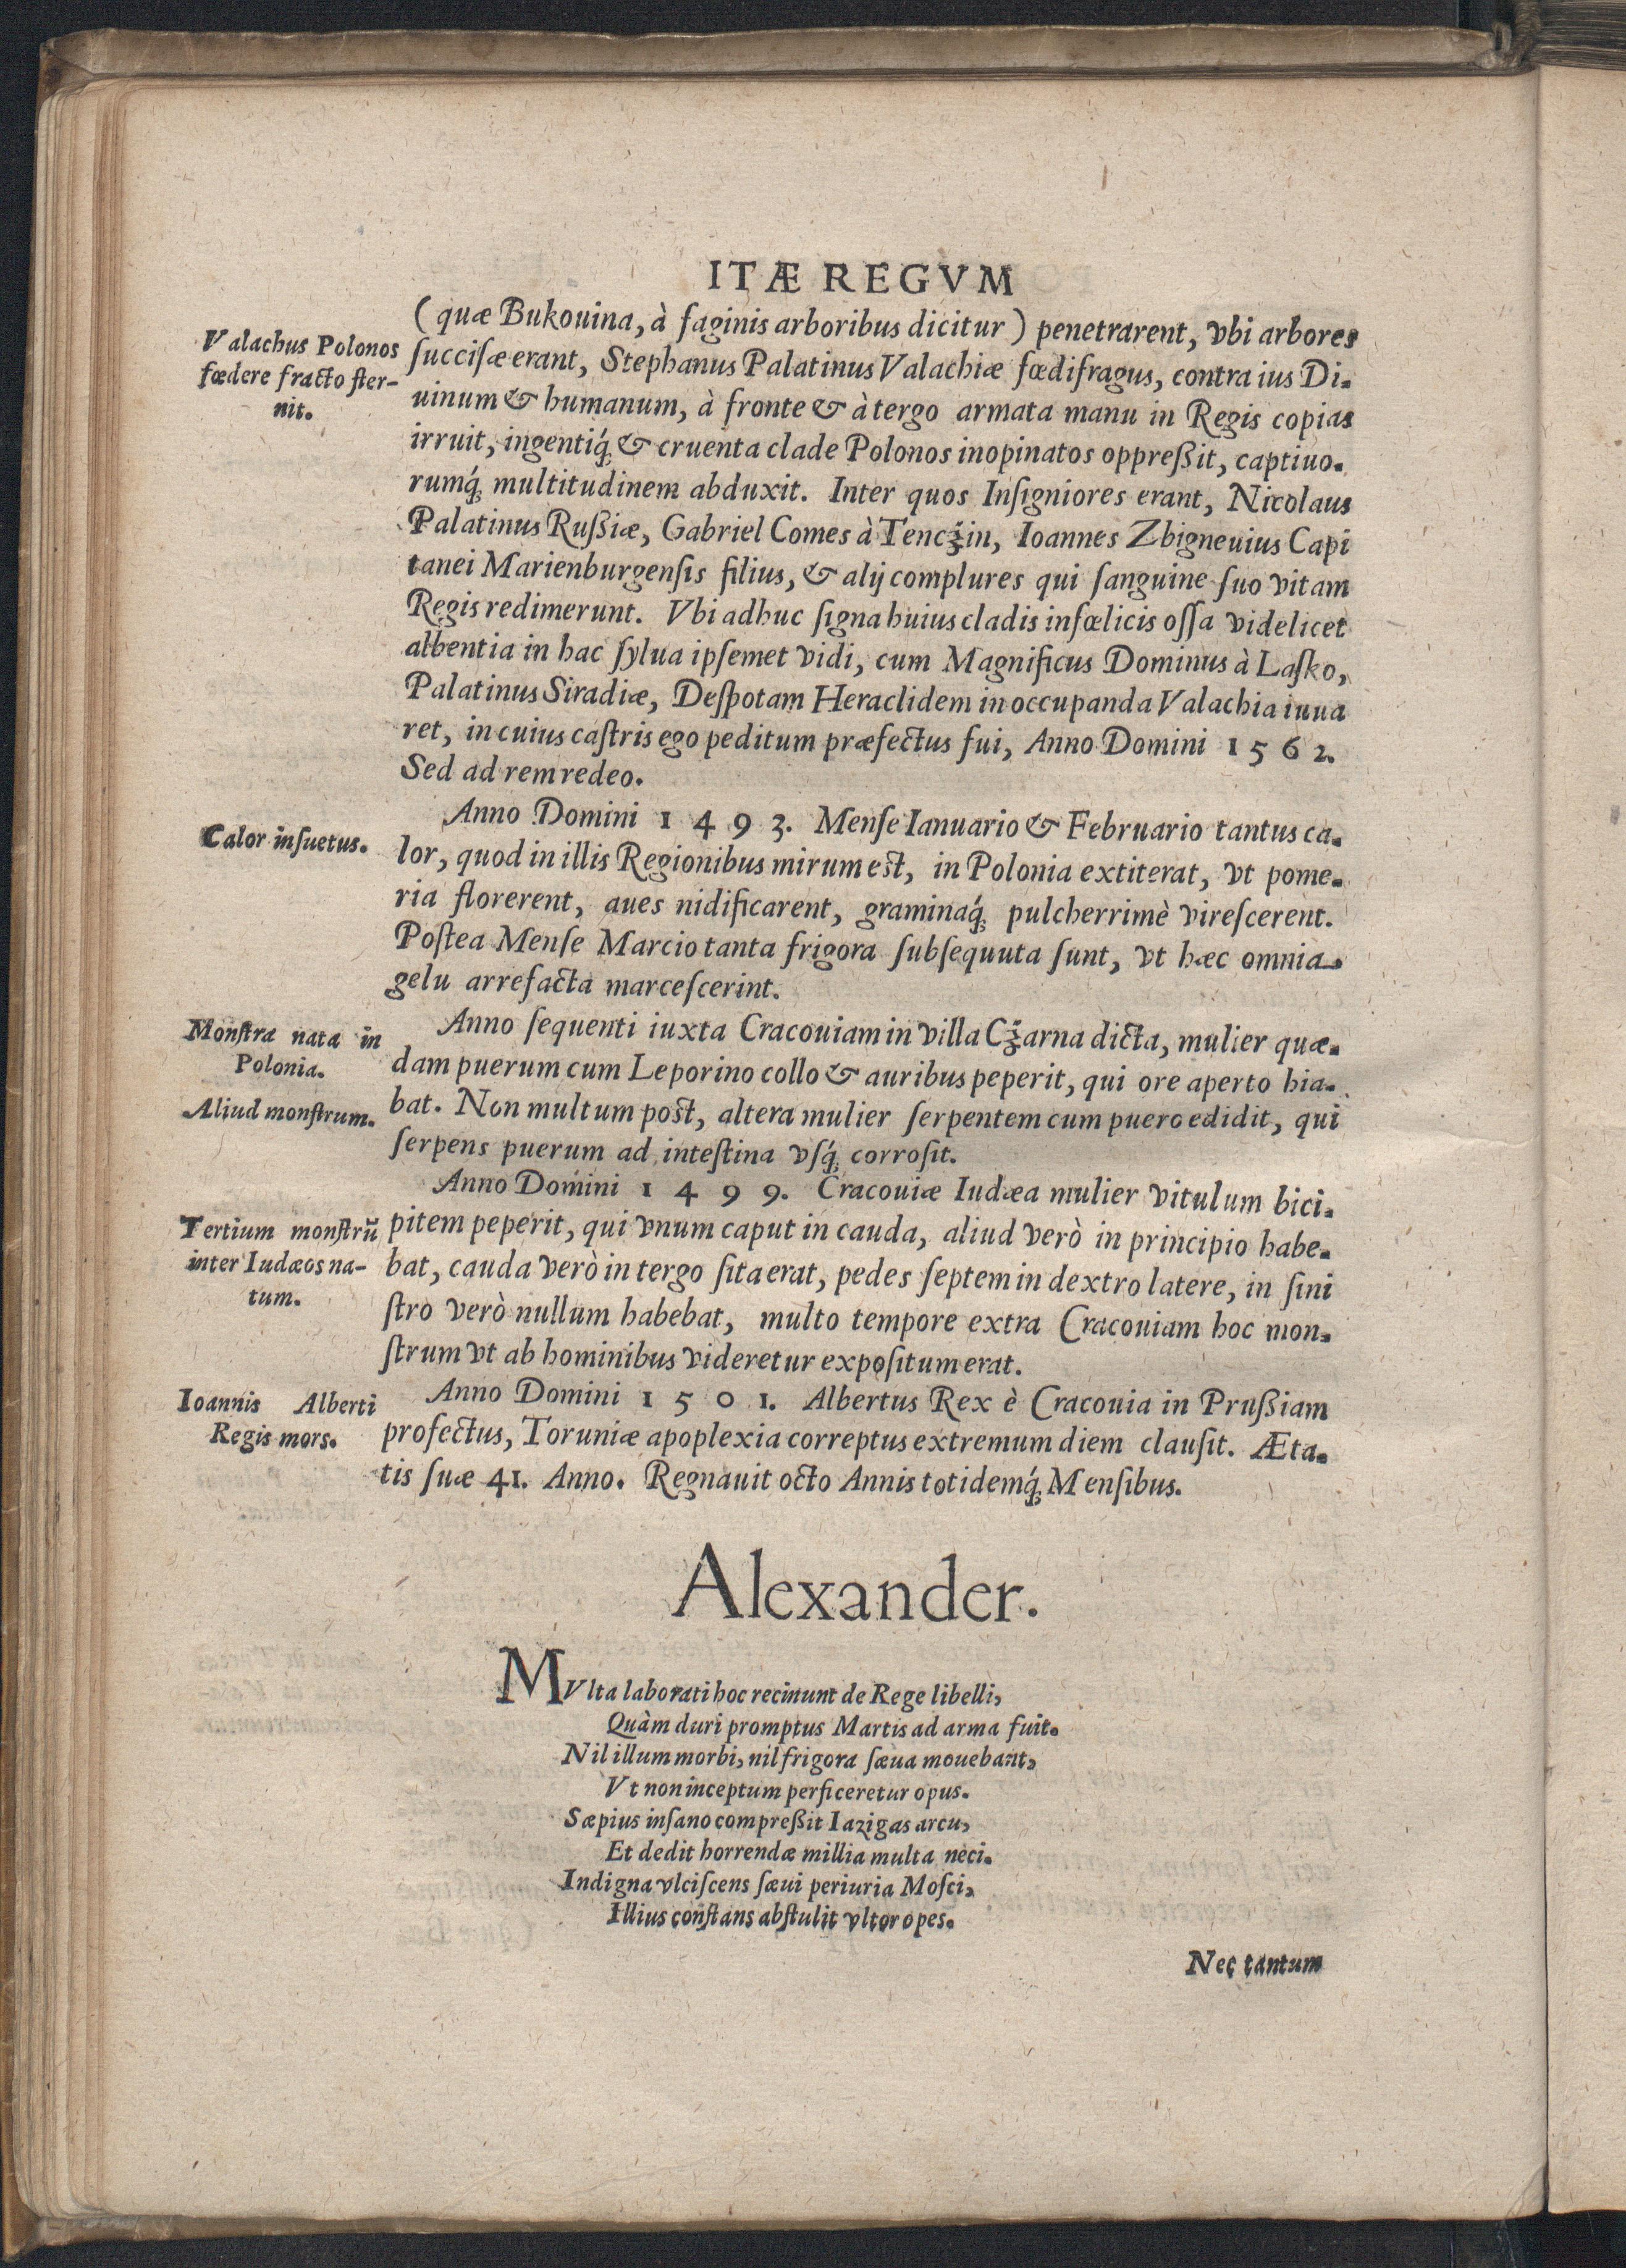 ITÆ REGVM
(quæ Bukouina, à faginis arboribus dicitur) penetrarent, vbi arbores
Valachus Polonos
fœdere fracto ſter-
nit.
ſucciſæ erant, Stephanus Palatinus Valachiæ fœdifragus, contra ius Di-
uinum & humanum, à fronte & à tergo armata manu in Regis copias
irruit, ingentiq́; & cruenta clade Polonos inopinatos oppreßit, captiuo-
rumq́; multitudinem abduxit. Inter quos Inſigniores erant, Nicolaus
Palatinus Rußiæ, Gabriel Comes à Tencžin, Ioannes Zbigneuius Capi
tanei Marienburgenſis filius, & alij complures qui ſanguine ſuo vitam
Regis redimerunt. Vbi adhuc ſigna huius cladis infœlicis oſſa videlicet
albentia in hac ſylua ipſemet vidi, cum Magnificus Dominus à Laſko,
Palatinus Siradiæ, Deſpotam Heraclidem in occupanda Valachia iuua
ret, in cuius caſtris ego peditum præfectus fui, Anno Domini 1562.
Sed ad rem redeo.
Anno Domini 1493. Menſe Ianuario & Februario tantus ca-
Calor inſuetus.
lor, quod in illis Regionibus mirum est, in Polonia extiterat, vt pome-
ria florerent, aues nidificarent, graminaq́; pulcherrimè vireſcerent.
Poſtea Menſe Marcio tanta frigora ſubſequuta ſunt, vt hæc omnia
gelu arrefacta marceſcerint.
Monſtra nata in
Polonia.
Anno ſequenti iuxta Cracouiam in villa Cžarna dicta, mulier quæ-
dam puerum cum Leporino collo & auribus peperit, qui ore aperto hia-
Aliud monſtrum.
bat. Non multum post, altera mulier ſerpentem cum puero edidit, qui
ſerpens puerum ad inteſtina vſq́; corroſit.
Anno Domini 1499. Cracouiæ Iudæa mulier vitulum bici-
Tertium monſtrũ
inter Iudæos na-
tum.
pitem peperit, qui vnum caput in cauda, aliud verò in principio habe-
bat, cauda verò in tergo ſita erat, pedes ſeptem in dextro latere, in ſini
ſtro verò nullum habebat, multo tempore extra Cracouiam hoc mon-
ſtrum vt ab hominibus videretur expoſitum erat.
Ioannis Alberti
Regis mors.
Anno Domini 1501. Albertus Rex è Cracouia in Prußiam
profectus, Toruniæ apoplexia correptus extremum diem clauſit. Æta-
tis ſuæ 41. Anno. Regnauit octo Annis totidemq́; Menſibus.
Alexander.
MVlta laborati hoc recinunt de Rege libelli,
Quàm duri promptus Martis ad arma fuit.
Nil illum morbi, nil frigora ſæua mouebant,
Vt non inceptum perficeretur opus.
Sæpius inſano compreßit Iazigas arcu,
Et dedit horrendæ millia multa neci.
Indigna vlciſcens ſæui periuria Moſci,
Illius conſtans abſtulit vltor opes.
Nec tantum